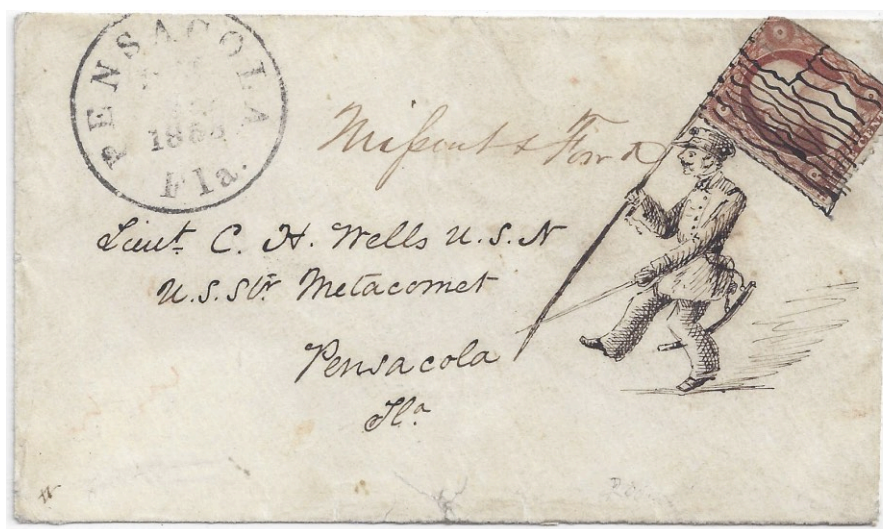 PENSACOLA
Fla.
Missent & Forwd
Lieut. C. H. Wells U.S.N
U.S. Str. Metacomet
Pensacola
Fla